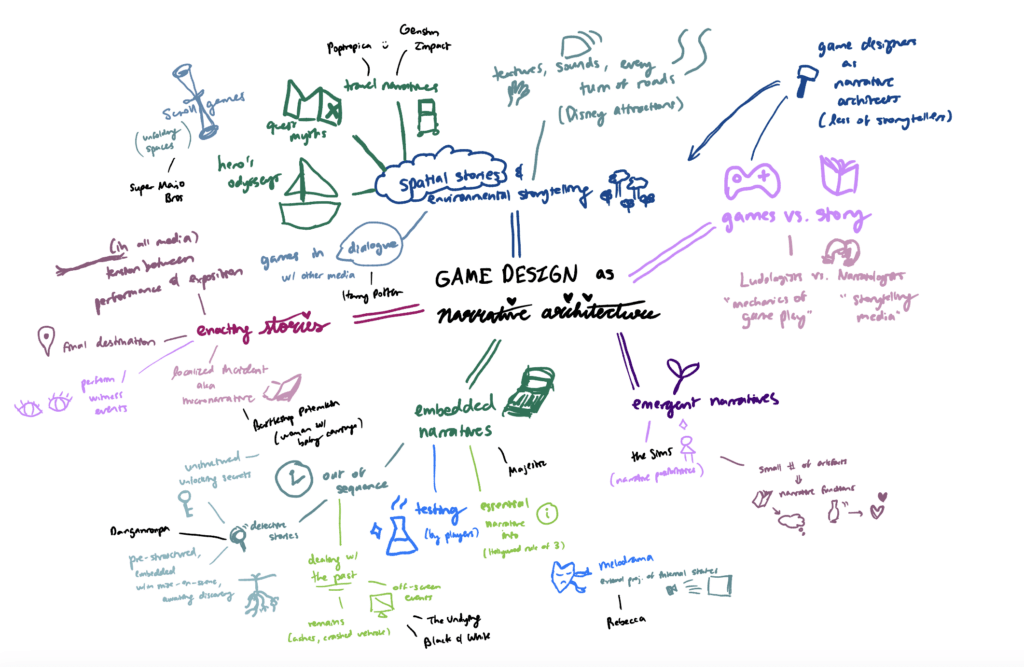 GAME DESIGN as
narrative architecture
spatial stories &
environmental storytelling
travel narratives
Poptropica :)
Genshin
Impact
quest
myths
hero's
odysseys
textures, sounds, every
turn of roads
(Disney attractions)
game designers
as
narrative
architects
(less of storytellers)
Scroll games
(unfolding
spaces)
Super Mario
Bros
games in dialogue
w/ other media
Harry Potter
games vs. story
Ludologists vs. Narratologists
"mechanics of
game play"
"storytelling
media"
enacting stories
(in all media)
tension between
performance & exposition
final destination
perform /
witness
events
localized incident
aka
micronarrative
Battleship Potemkin
(woman w/
baby carriage)
embedded
narratives
Majestic
out of
sequence
detective
stories
unstructured
unlocking secrets
Danganronpa
pre-structured,
embedded
w/in mise-en-scene,
awaiting discovery
dealing w/
the past
remains
(ashes, crashed vehicle)
off-screen
events
The Undying
Black & White
testing
(by players)
essential
narrative
info
(Hollywood rule of 3)
melodrama
external proj. of internal states
Rebecca
emergent narratives
the Sims
small # of artifacts
narrative functions